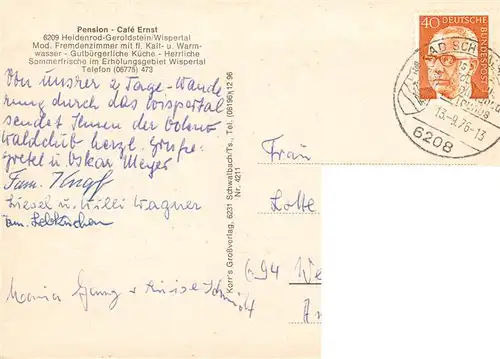 Pension - Café Ernst
6209 Heidenrod-Geroldstein-Wispertal
Mod. Fremdenzimmer mit fl. Kalt- u. Warm-
wasser - Gutbürgerliche Küche - Herrliche
Sommerfrische im Erholungsgebiet Wispertal
Telefon (06775) 473
Von unserer 2 Tage-Wande
rung durch das Wispertal
sendet Ihnen der
waldclub herzl. Grüße
Gretel u Oskar Meyer
Fam.
Liesel u. Willi Wagner
Maria u Luise Schmidt
Korr's Großverlag, 6231 Schwalbach/Ts., Tel. (06196) 12 96
Nr. 4211
40 DEUTSCHE BUNDESPOST
BAD SCH
13.-9.76-13
6208
Frau
Lotte
694 We